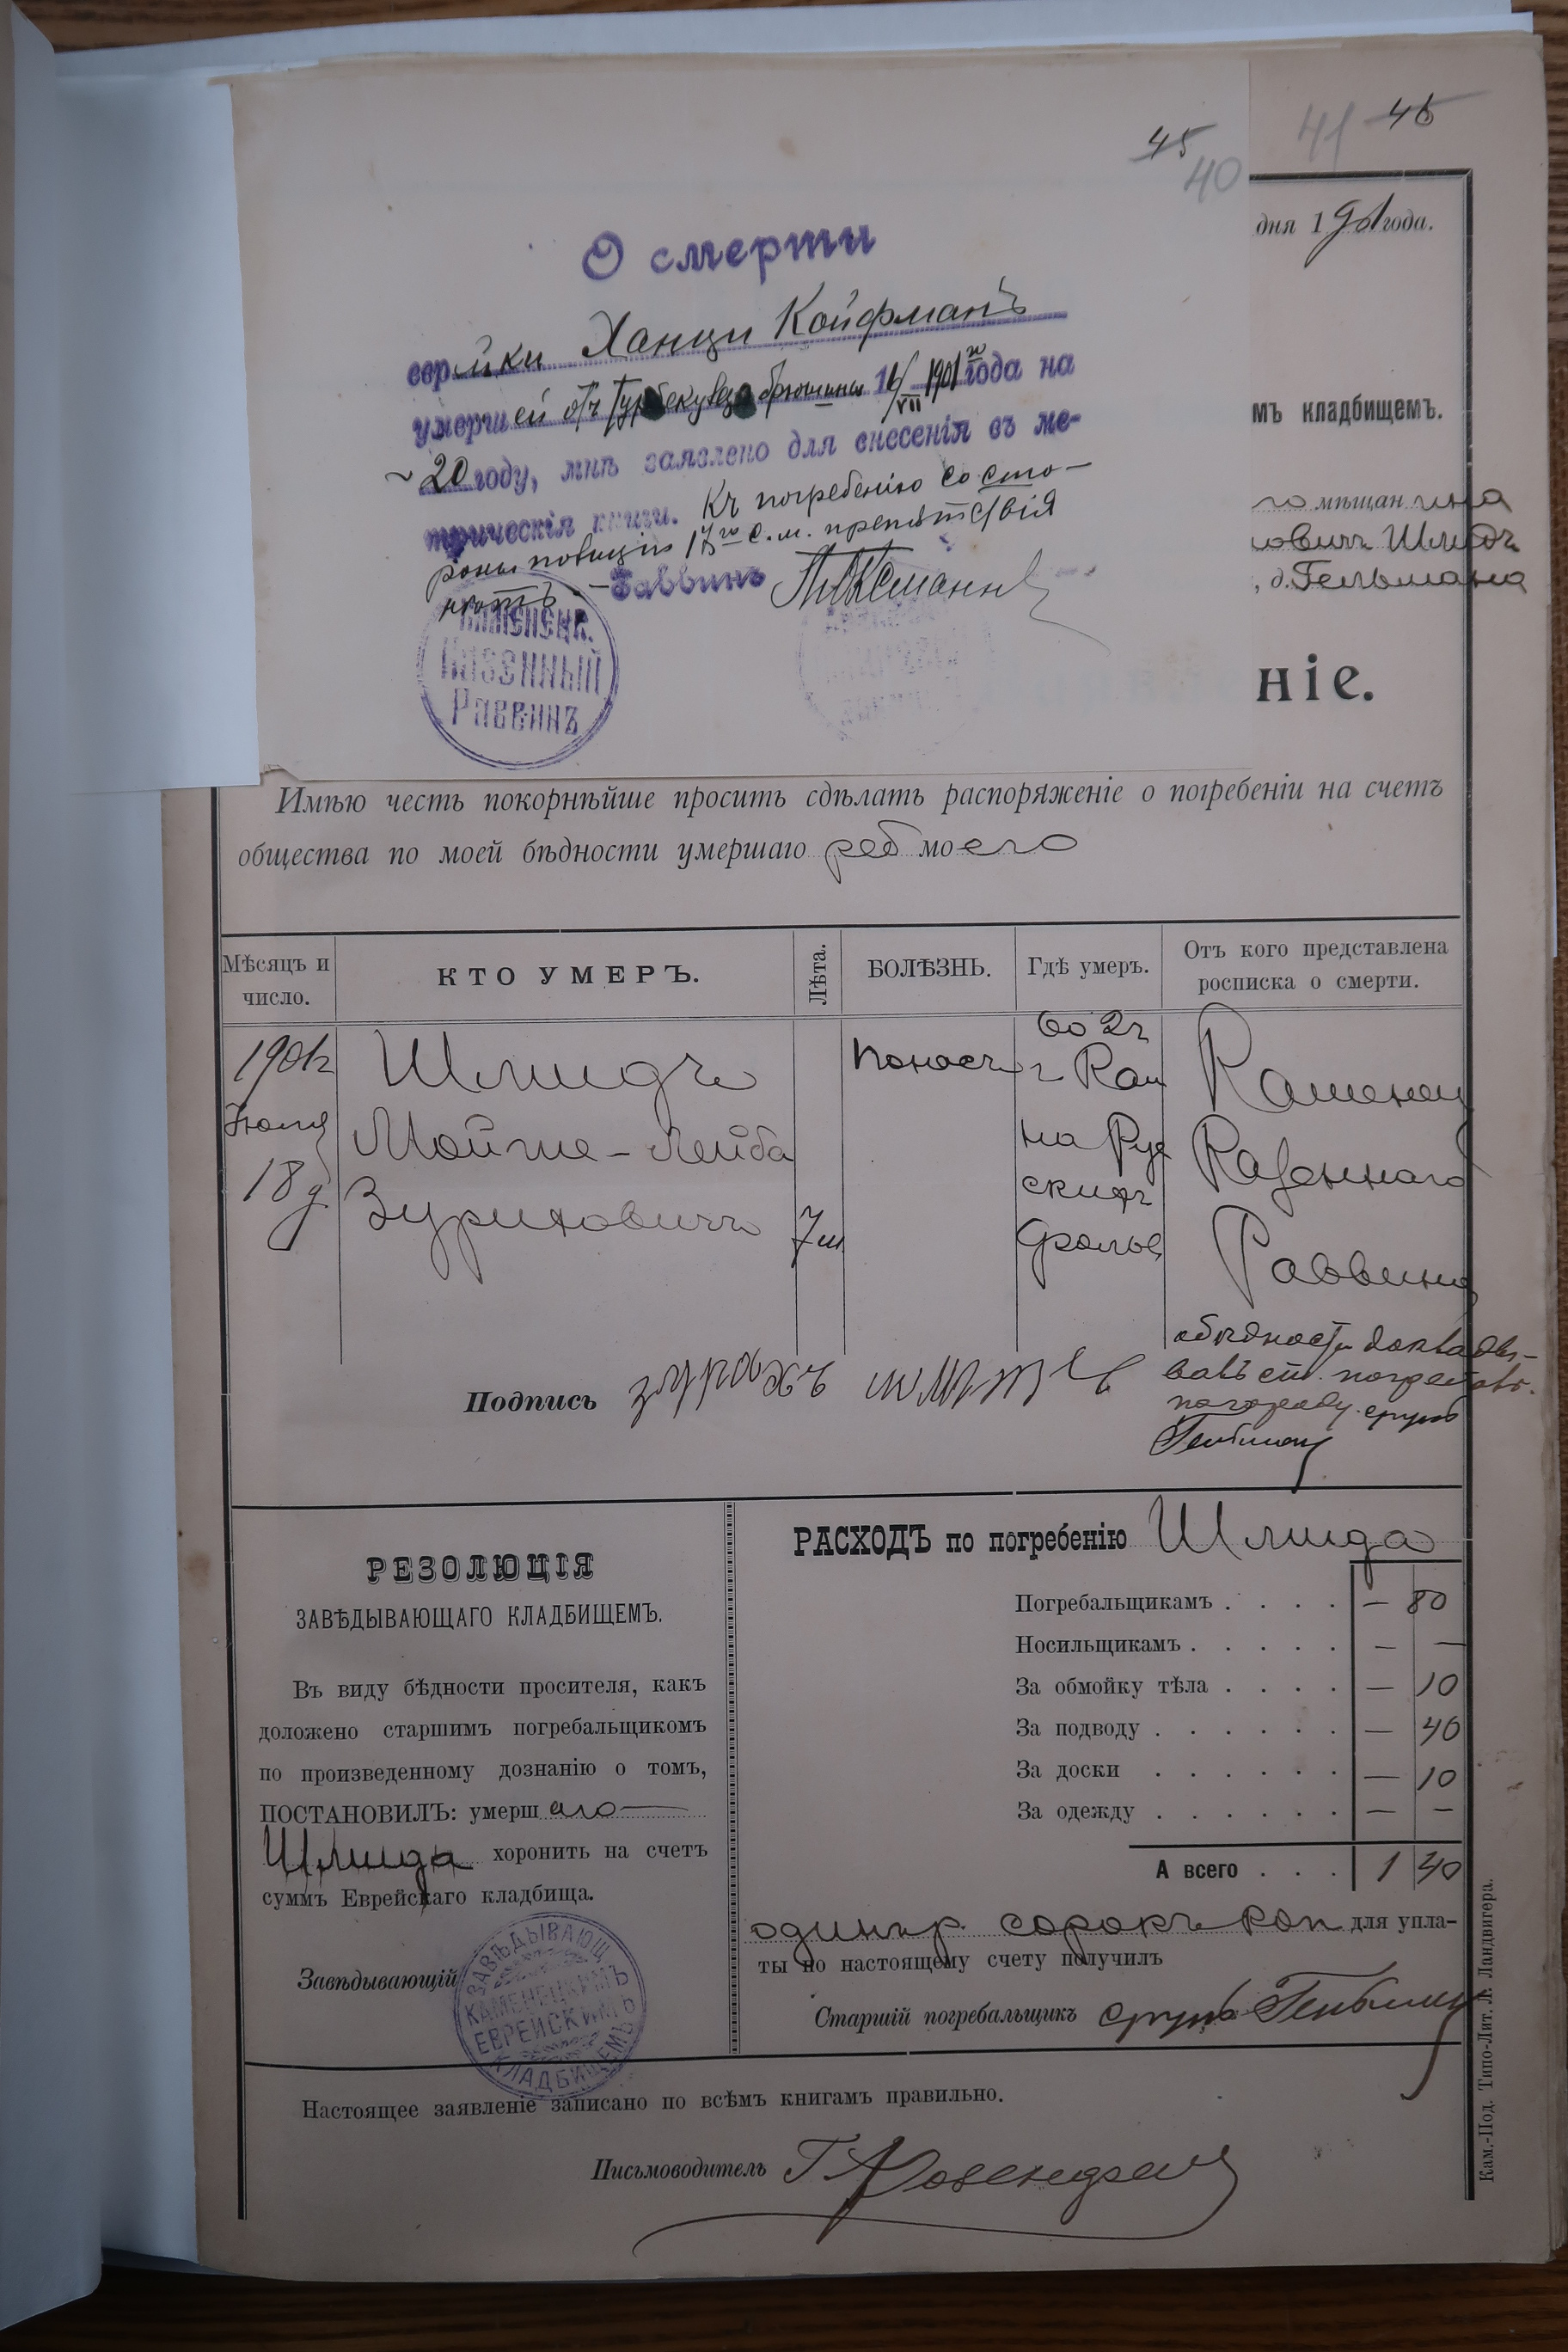 45 41 45
40
дня 1901 года.
О смерти
еврейки Ханци Койфманъ
умершей отъ брюшины 16/VII 1901 года на
20 году, мнѣ заявлено для внесенія въ ме-
трическія книги. Къ погребенію со сто-
роны полиціи 17го с. м. препятствія
нѣтъ. – Раввинъ
КАМЕНЕЦК.
КАЗЕННЫЙ
РАВВИНЪ
мъ кладбищемъ.
го мѣщанина
овичъ Шмидъ
, д. Гельмана
ніе.
Имѣю честь покорнѣйше просить сдѣлать распоряженіе о погребеніи на счетъ
общества по моей бѣдности умершаго реб моего
Мѣсяцъ и число.
КТО УМЕРЪ.
Лѣта.
БОЛѢЗНЬ.
Гдѣ умеръ.
Отъ кого представлена росписка о смерти.
1901г
Іюля
18 д
Шмидъ
Мойше-Лейба
Зуриховичъ
7 м
поносъ
во 2ч
г Кам
на Рус
скихъ
фольв
Каменец
Казеннаго
Раввина
Подпись
Гельман
РЕЗОЛЮЦІЯ
ЗАВѢДЫВАЮЩАГО КЛАДБИЩЕМЪ.
Въ виду бѣдности просителя, какъ
доложено старшимъ погребальщикомъ
по произведенному дознанію о томъ,
ПОСТАНОВИЛЪ: умершаго
Шмида хоронить на счетъ
суммъ Еврейскаго кладбища.
Завѣдывающій
ЗАВѢДЫВАЮЩ.
КАМЕНЕЦКИМЪ
ЕВРЕЙСКИМЪ
КЛАДБИЩЕМЪ
РАСХОДЪ по погребенію Шмида
Погребальщикамъ . . . . — 80
Носильщикамъ . . . . . — —
За обмойку тѣла . . . . — 10
За подводу . . . . . . — 40
За доски . . . . . . — 10
За одежду . . . . . . — —
А всего . . . 1 40
одинъ р. сорокъ коп для упла-
ты по настоящему счету получилъ
Старшій погребальщикъ Сруль Гельман
Настоящее заявленіе записано по всѣмъ книгамъ правильно.
Письмоводитель
Кам.-Под. Типо-Лит. Л. Ландвигера.